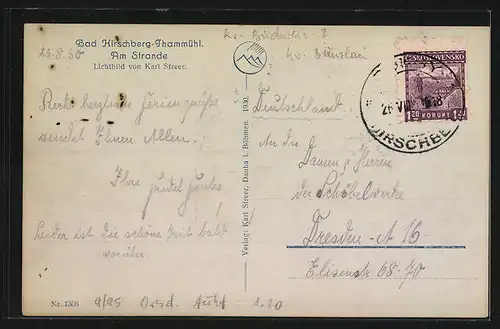 26.8.30
Bad Hirschberg-Thammühl.
Am Strande
Lichtbild von Karl Streer.
Recht herzliche Feriengrüße
sendet Ihnen Allen,
Ihre
Leider ist die schöne Zeit bald
vorüber.
Nr. 1308
Verlag: Karl Streer, Dauba i. Böhmen
1930.
ČESKOSLOVENSKO
1.20 KORUNY 1.20
HIRSCHBE
Deutschland.
An die
Damen u. Herren
der Schöbelwerke
Dresden-A 16
Elisenstr 68-70
9/95 Orsd. A.20